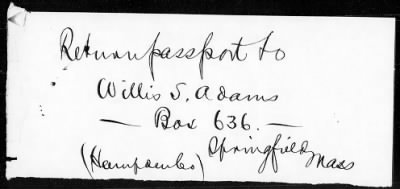 Return passport to
Willis S. Adams
— Box 636. —
(Hampden Co) Springfield, Mass